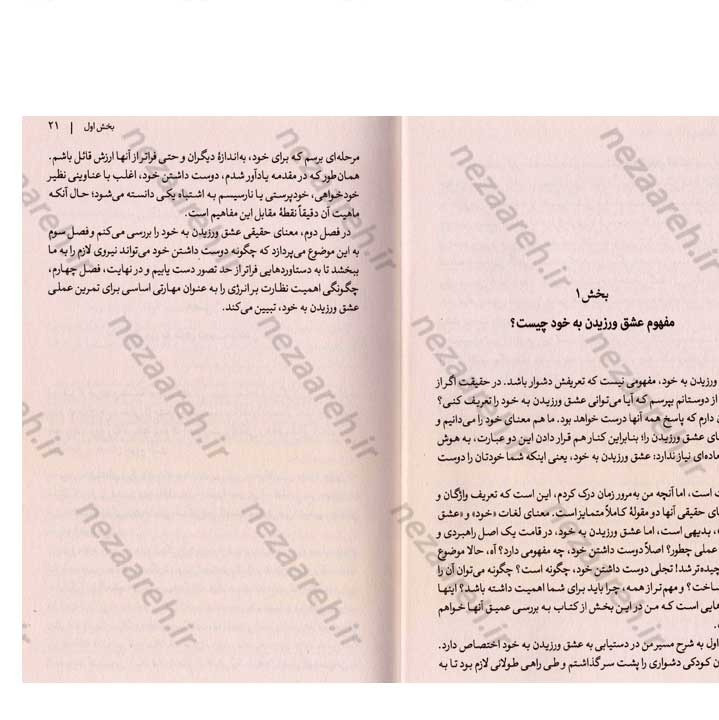 بخش ۱
مفهوم عشق ورزیدن به خود چیست؟
ورزیدن به خود، مفهومی نیست که تعریفش دشوار باشد. در حقیقت اگر از
از دوستانم بپرسم که آیا می‌توانی عشق ورزیدن به خود را تعریف کنی؟
دارم که پاسخ همه آنها درست خواهد بود. ما هم معنای خود را می‌دانیم و
عشق ورزیدن را؛ بنابراین کنار هم قرار دادن این دو عبارت، به هوش
نیاز ندارد: عشق ورزیدن به خود، یعنی اینکه شما خودتان را دوست
است، اما آنچه من به‌مرور زمان درک کردم، این است که تعریف واژگان و
حقیقی آنها دو مقولهٔ کاملاً متمایز است. معنای لغات «خود» و «عشق
بدیهی است، اما عشق ورزیدن به خود، در قامت یک اصل راهبردی و
عملی چطور؟ اصلاً دوست داشتن خود، چه مفهومی دارد؟ آه، حالا موضوع
شد! تجلی دوست داشتن خود، چگونه است؟ چگونه می‌توان آن را
و مهم‌تر از همه، چرا باید برای شما اهمیت داشته باشد؟ اینها
است که من در این بخش از کتاب به بررسی عمیق آنها خواهم
اول به شرح مسیر من در دستیابی به عشق ورزیدن به خود اختصاص دارد.
کودکی دشواری را پشت سر گذاشتم و طی راهی طولانی لازم بود تا به
بخش اول | ۲۱
مرحله‌ای برسم که برای خود، به‌اندازهٔ دیگران و حتی فراتر از آنها ارزش قائل باشم.
همان‌طور که در مقدمه یادآور شدم، دوست داشتن خود، اغلب با عناوینی نظیر
خودخواهی، خودپرستی یا نارسیسم به اشتباه یکی دانسته می‌شود؛ حال آنکه
ماهیت آن دقیقاً نقطهٔ مقابل این مفاهیم است.
در فصل دوم، معنای حقیقی عشق ورزیدن به خود را بررسی می‌کنم و فصل سوم
به این موضوع می‌پردازد که چگونه دوست داشتن خود می‌تواند نیروی لازم را به ما
ببخشد تا به دستاوردهایی فراتر از حد تصور دست یابیم و در نهایت، فصل چهارم،
چگونگی اهمیت نظارت بر انرژی را به عنوان مهارتی اساسی برای تمرین عملی
عشق ورزیدن به خود، تبیین می‌کند.
nezaareh.ir
nezaareh.ir
nezaareh.ir
nezaareh.ir
nezaareh.ir
nezaareh.ir
nezaareh.ir
nezaareh.ir
nezaareh.ir
nezaareh.ir
nezaareh.ir
nezaareh.ir